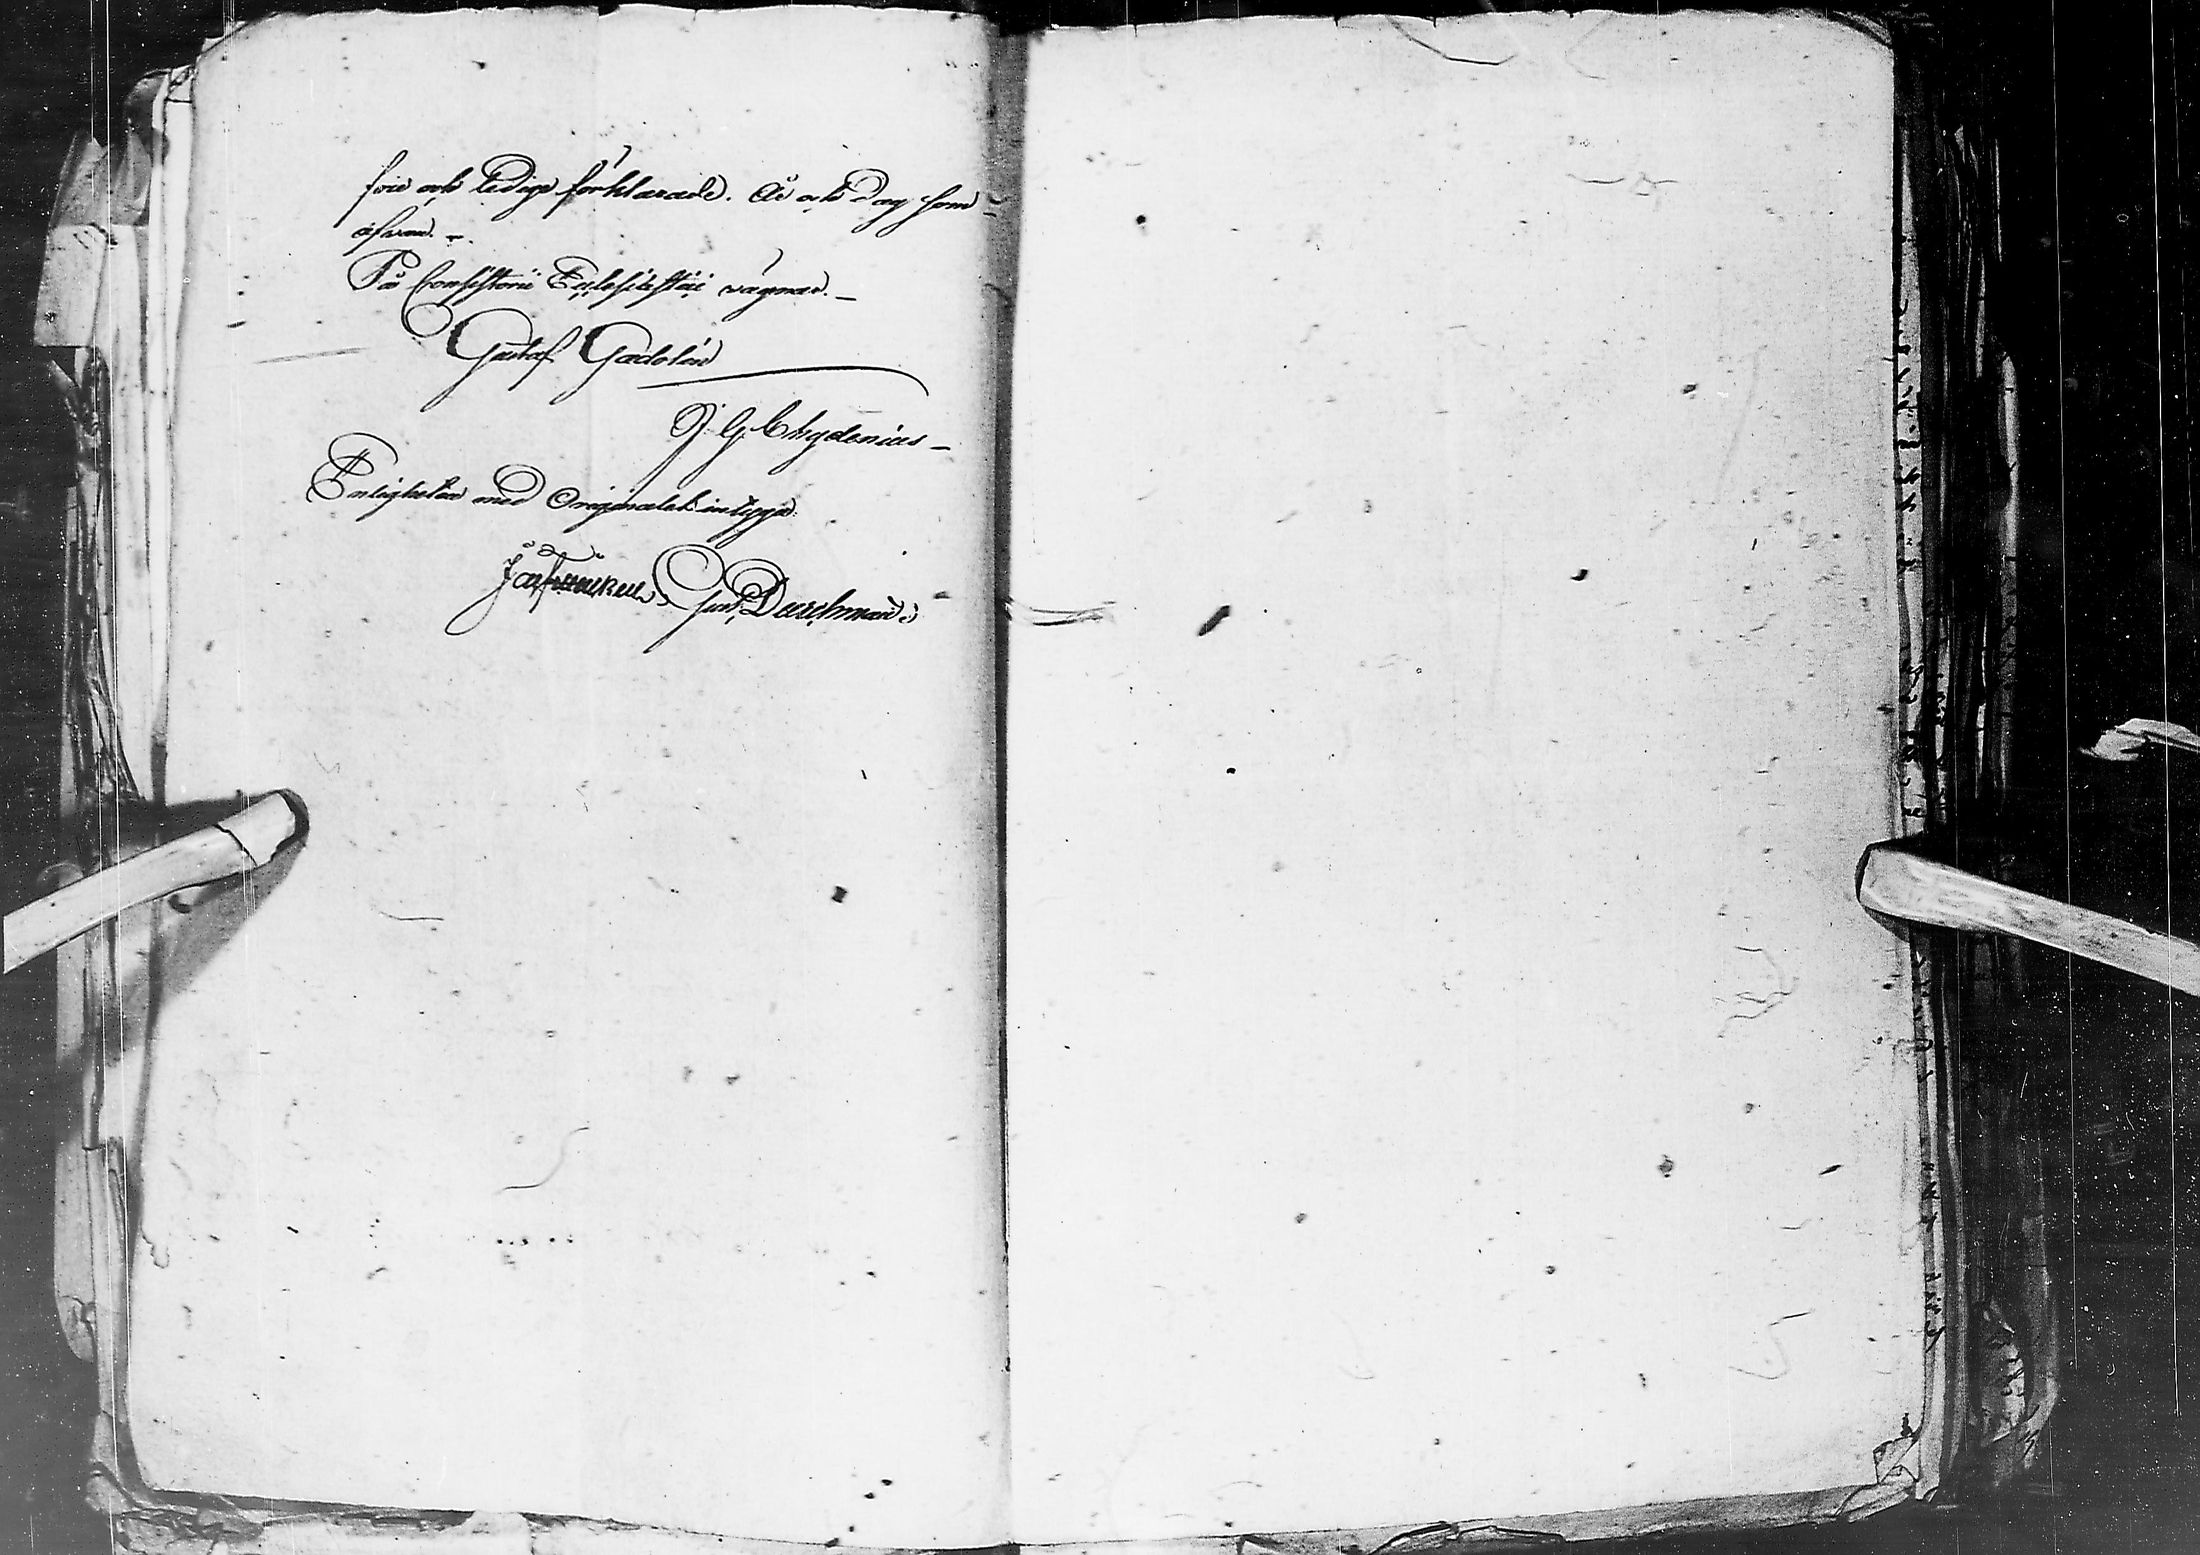 frie och ledige förklarade. År och Dag som
ofwan. –
På Consistorii Ecclesiastici wägnar. –
Gustaf Gadolin
J. G. Chydenius –
Enligheten med Originalet intyga
Gust. Durchman